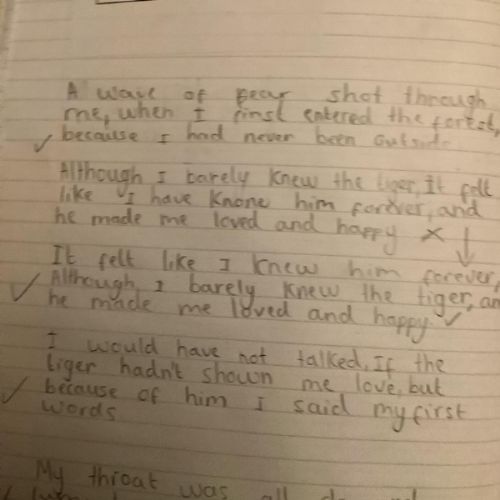 A wave of fear shot through
me, when I first entered the forest,
because I had never been outside
Although I barely knew the tiger, It felt
like I have knone him forever, and
he made me loved and happy
It felt like I knew him forever,
Although, I barely knew the tiger, an
he made me loved and happy.
I would have not talked, If the
tiger hadn't shown me love, but
because of him I said my first
words
My throat was all